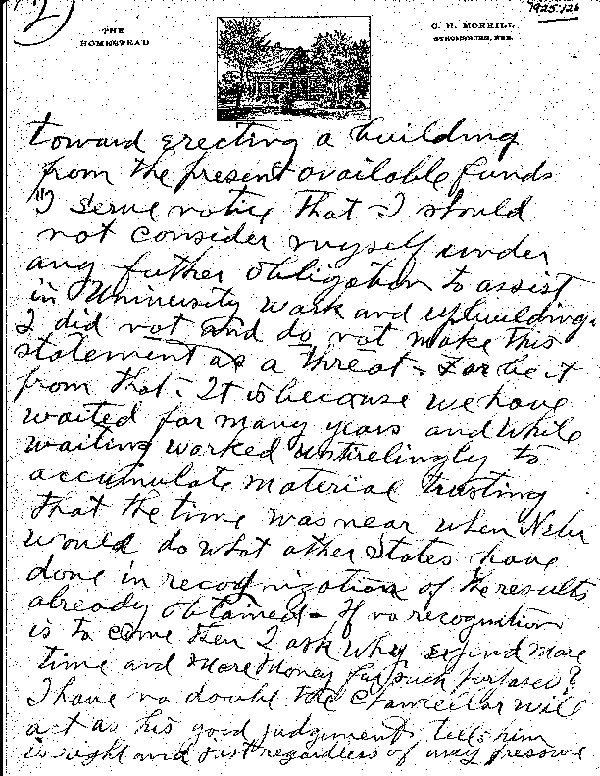 2)
1925/26
THE
HOMESTEAD
C. H. MORRILL
STROMSBURG, NEB.
toward erecting a building
from the present available funds
"I serve notice that I should
not consider myself under
any futher obligation to assist
in University work and upbuilding.
I did not and do not make this
statement as a threat - Far be it
from that - It is because we have
waited for many years and while
waiting worked untirelingly to
accumulate material trusting
that the time was near when Nebr
would do what other States have
done in recognization of the results
already obtained - If no recognition
is to come then I ask why expend more
time and more money for such purposes?
I have no doubt the Chancellor will
act as his good judgement tells him
is right and just regardless of any pressure